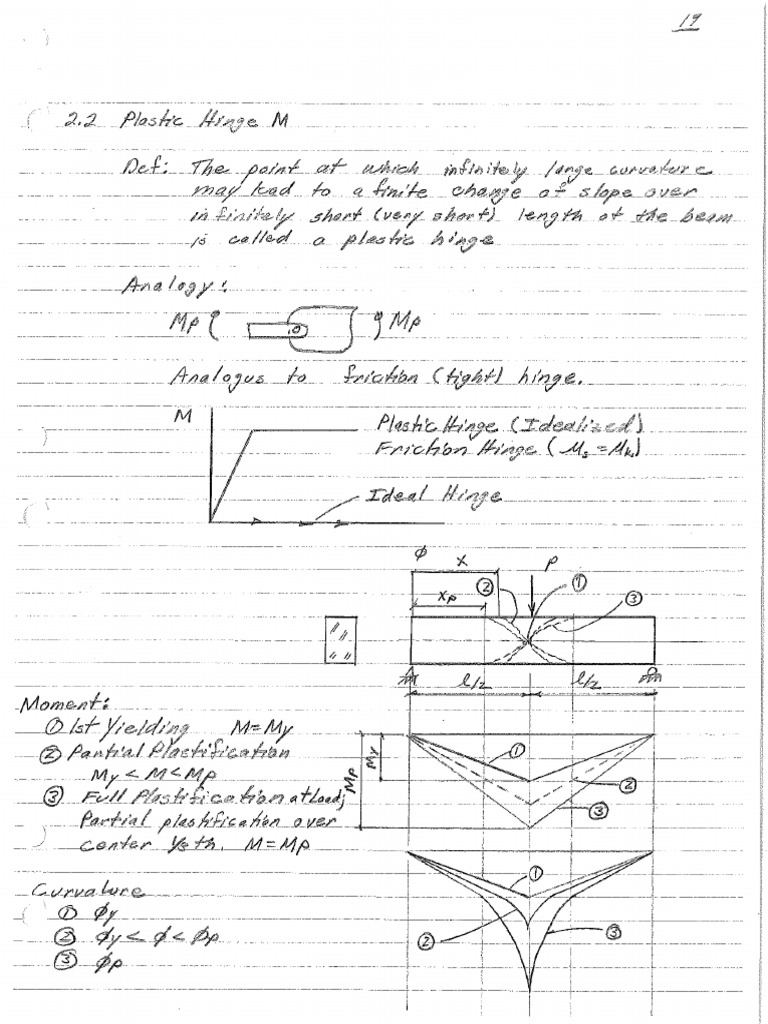 19
2.2 Plastic Hinge M
Def: The point at which infinitely large curvature
may lead to a finite change of slope over
infinitely short (very short) length of the beam
is called a plastic hinge
Analogy:
Mp Mp
Analogus to friction (tight) hinge.
M
Plastic Hinge (Idealized)
Friction Hinge (μs = μk)
Ideal Hinge
ϕ
x P
② ① ③
xp
l/2 l/2
Moment:
① 1st Yielding M = My
② Partial Plastification
My < M < Mp
③ Full Plastification at Load;
Partial plastification over
center M = Mp
Mp My
① ② ③
Curvature
① ϕy
② ϕy < ϕ < ϕp
③ ϕp
① ② ③